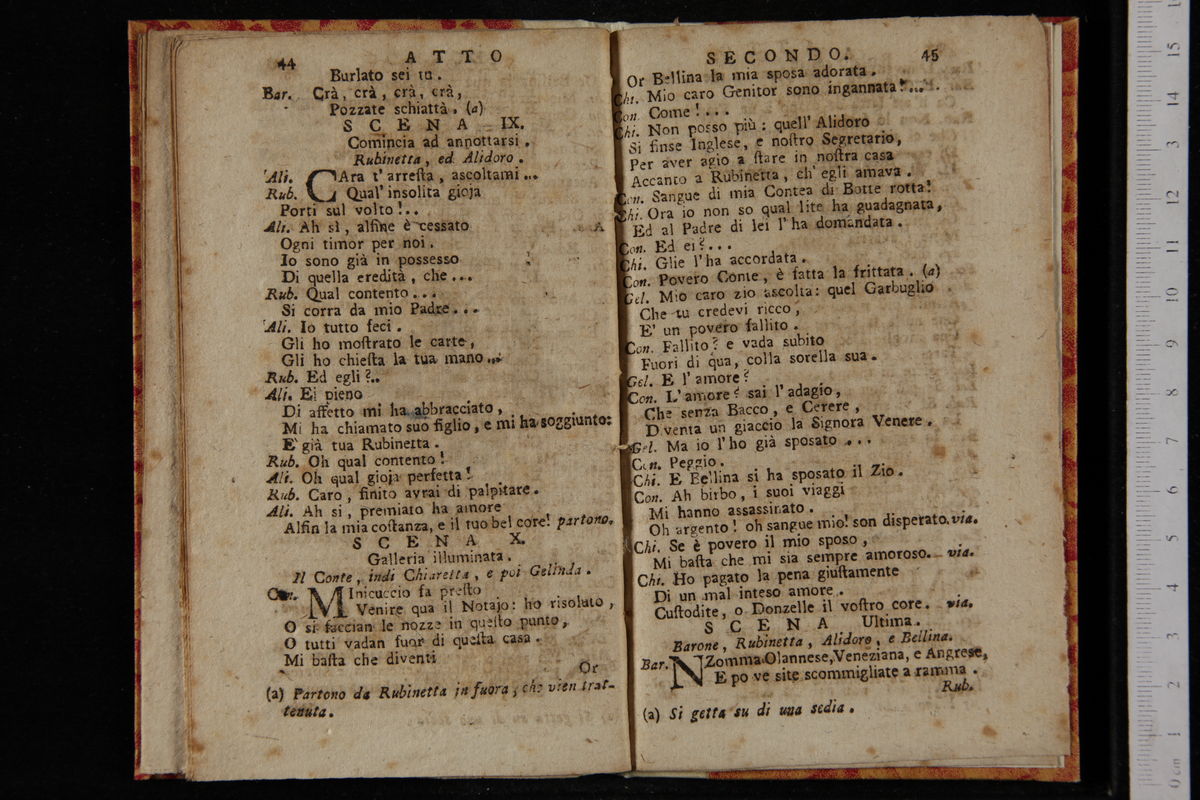 44 ATTO
Burlato sei tu.
Bar. Crà, crà, crà, crà,
Pozzate schiattà. (a)
SCENA IX.
Comincia ad annottarsi.
Rubinetta, ed Alidoro.
Ali. CAra t' arresta, ascoltami...
Rub. Qual' insolita gioja
Porti sul volto!..
Ali. Ah sì, alfine è cessato
Ogni timor per noi.
Io sono già in possesso
Di quella eredità, che...
Rub. Qual contento...
Si corra da mio Padre...
Ali. Io tutto feci.
Gli ho mostrato le carte,
Gli ho chiesta la tua mano...
Rub. Ed egli?..
Ali. Ei pieno
Di affetto mi ha abbracciato,
Mi ha chiamato suo figlio, e mi ha soggiunto:
E' già tua Rubinetta.
Rub. Oh qual contento!
Ali. Oh qual gioja perfetta!
Rub. Caro, finito avrai di palpitare.
Ali. Ah si, premiato ha amore
Alfin la mia costanza, e il tuo bel core! partono.
SCENA X.
Galleria illuminata.
Il Conte, indi Chiaretta, e poi Gelinda.
Con. MInicuccio fa presto
Venire qua il Notajo: ho risoluto,
O si faccian le nozze in questo punto,
O tutti vadan fuor di questa casa.
Mi basta che diventi
Or
(a) Partono da Rubinetta in fuora, che vien trat-
tenuta.
SECONDO. 45
Or Bellina la mia sposa adorata.
Chi. Mio caro Genitor sono ingannata!...
Con. Come!...
Chi. Non posso più: quell' Alidoro
Si finse Inglese, e nostro Segretario,
Per aver agio a stare in nostra casa
Accanto a Rubinetta, ch' egli amava.
Con. Sangue di mia Contea di Botte rotta!
Chi. Ora io non so qual lite ha guadagnata,
Ed al Padre di lei l' ha domandata.
Con. Ed ei?...
Chi. Glie l' ha accordata.
Con. Povero Conte, è fatta la frittata. (a)
Gel. Mio caro zio ascolta: quel Garbuglio
Che tu credevi ricco,
E' un povero fallito.
Con. Fallito? e vada subito
Fuori di qua, colla sorella sua.
Gel. E l' amore?
Con. L' amore? sai l' adagio,
Che senza Bacco, e Cerere,
Diventa un giaccio la Signora Venere.
Gel. Ma io l' ho già sposato...
Con. Peggio.
Chi. E Bellina si ha sposato il Zio.
Con. Ah birbo, i suoi viaggi
Mi hanno assassinato.
Oh argento! oh sangue mio! son disperato. via.
Chi. Se è povero il mio sposo,
Mi basta che mi sia sempre amoroso. via.
Chi. Ho pagato la pena giustamente
Di un mal inteso amore.
Custodite, o Donzelle il vostro core. via.
SCENA Ultima.
Barone, Rubinetta, Alidoro, e Bellina.
Bar. NZomma Olannese, Veneziana, e Angrese,
E po ve site scommigliate a ramma.
Rub.
(a) Si getta su di una sedia.
0 cm 1 2 3 4 5 6 7 8 9 10 11 12 13 14 15